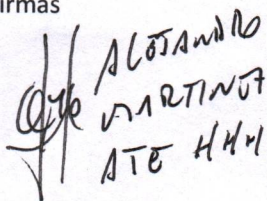 irmas
ALEJANDRO
MARTINEZ
ATE HHH